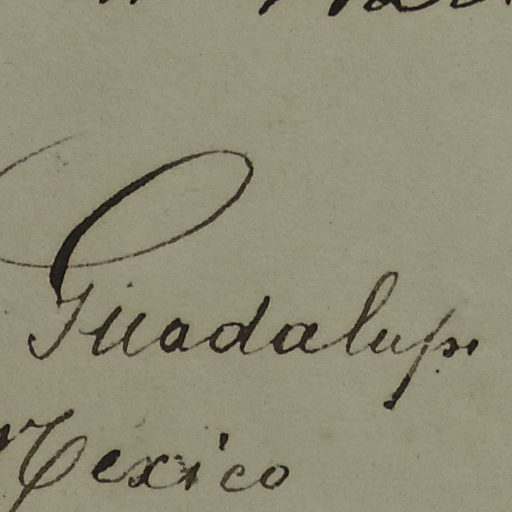 Guadalupe
Mexico